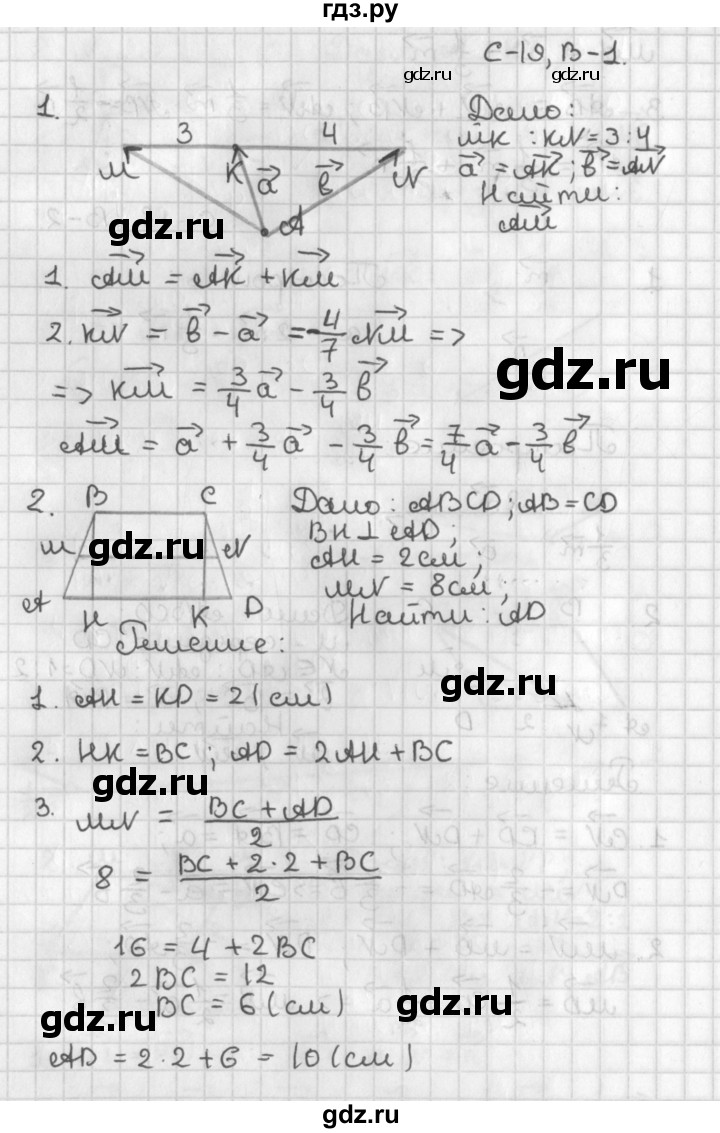 гдз.ру
С-19, В-1.
gdz.ru
1.
Дано:
3 4
MK : KN = 3 : 4
M K a⃗ b⃗ N
a⃗ = AK⃗; b⃗ = AN⃗
Найти:
gdz.ru
A
AM⃗
gdz.ru
1. AM⃗ = AK⃗ + KM⃗
2. KN⃗ = b⃗ - a⃗ = -4/7 NM⃗ =>
gdz.ru
=> KM⃗ = 3/4 a⃗ - 3/4 b⃗
AM⃗ = a⃗ + 3/4 a⃗ - 3/4 b⃗ = 7/4 a⃗ - 3/4 b⃗
2. B C
Дано: ABCD; AB = CD
BH ⊥ AD;
M gdz.ru N
AH = 2 см;
gdz.ru
MN = 8 см;
A H K D
Найти: AD
Решение:
gdz.ru
1. AH = KD = 2 (см)
2. HK = BC; AD = 2AH + BC
gdz.ru
3. MN = BC + AD / 2
8 = BC + 2·2 + BC / 2
gdz.ru
16 = 4 + 2BC
2BC = 12
BC = 6 (см)
gdz.ru
gdz.ru
AD = 2·2 + 6 = 10 (см)
gdz.ru